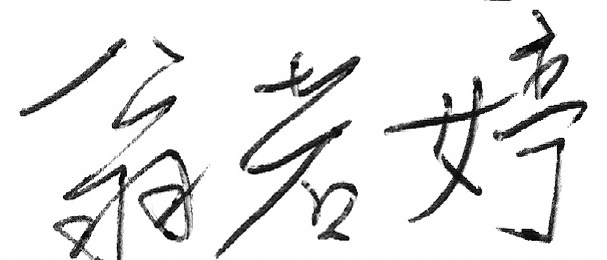 翁若婷